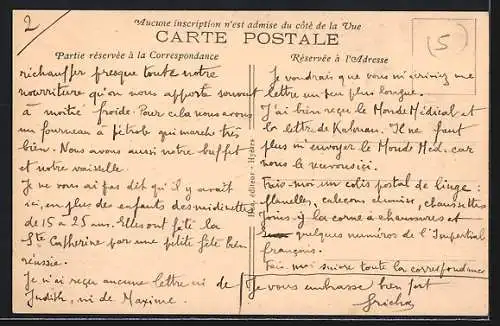 2
Aucune inscription n'est admise du côté de la Vue
CARTE POSTALE
(5)
Partie réservée à la Correspondance
Réservée à l'Adresse
réchauffer presque toute notre
nourriture qu'on nous apporte souvent
à moitié froide. Pour cela nous avons
un fourneau à pétrole qui marche très
bien. Nous avons aussi notre buffet
et notre vaisselle.
Je ne vous ai pas dit qu'il y avait
ici, en plus des enfants des midinettes
de 15 à 25 ans. Elles ont fêté la
Ste Catherine par une petite fête bien
réussie.
Je n'ai reçu aucune lettre ni de
Judith, ni de Maxime.
Éditeur - Hyères
Je voudrais que vous m'écriviez une
lettre un peu plus longue.
J'ai bien reçu le Monde Médical et
la lettre de Kalman. Il ne faut
plus m'envoyer le Monde Méd. car
nous le recevons ici.
Fais-moi un colis postal de linge :
flanelles, caleçons chemise, chaussettes
Joins-y la corne à chaussures et
quelques numéros de l'Impartial
français.
Fais-moi suivre toute la correspondance
Je vous embrasse bien fort
Gricha